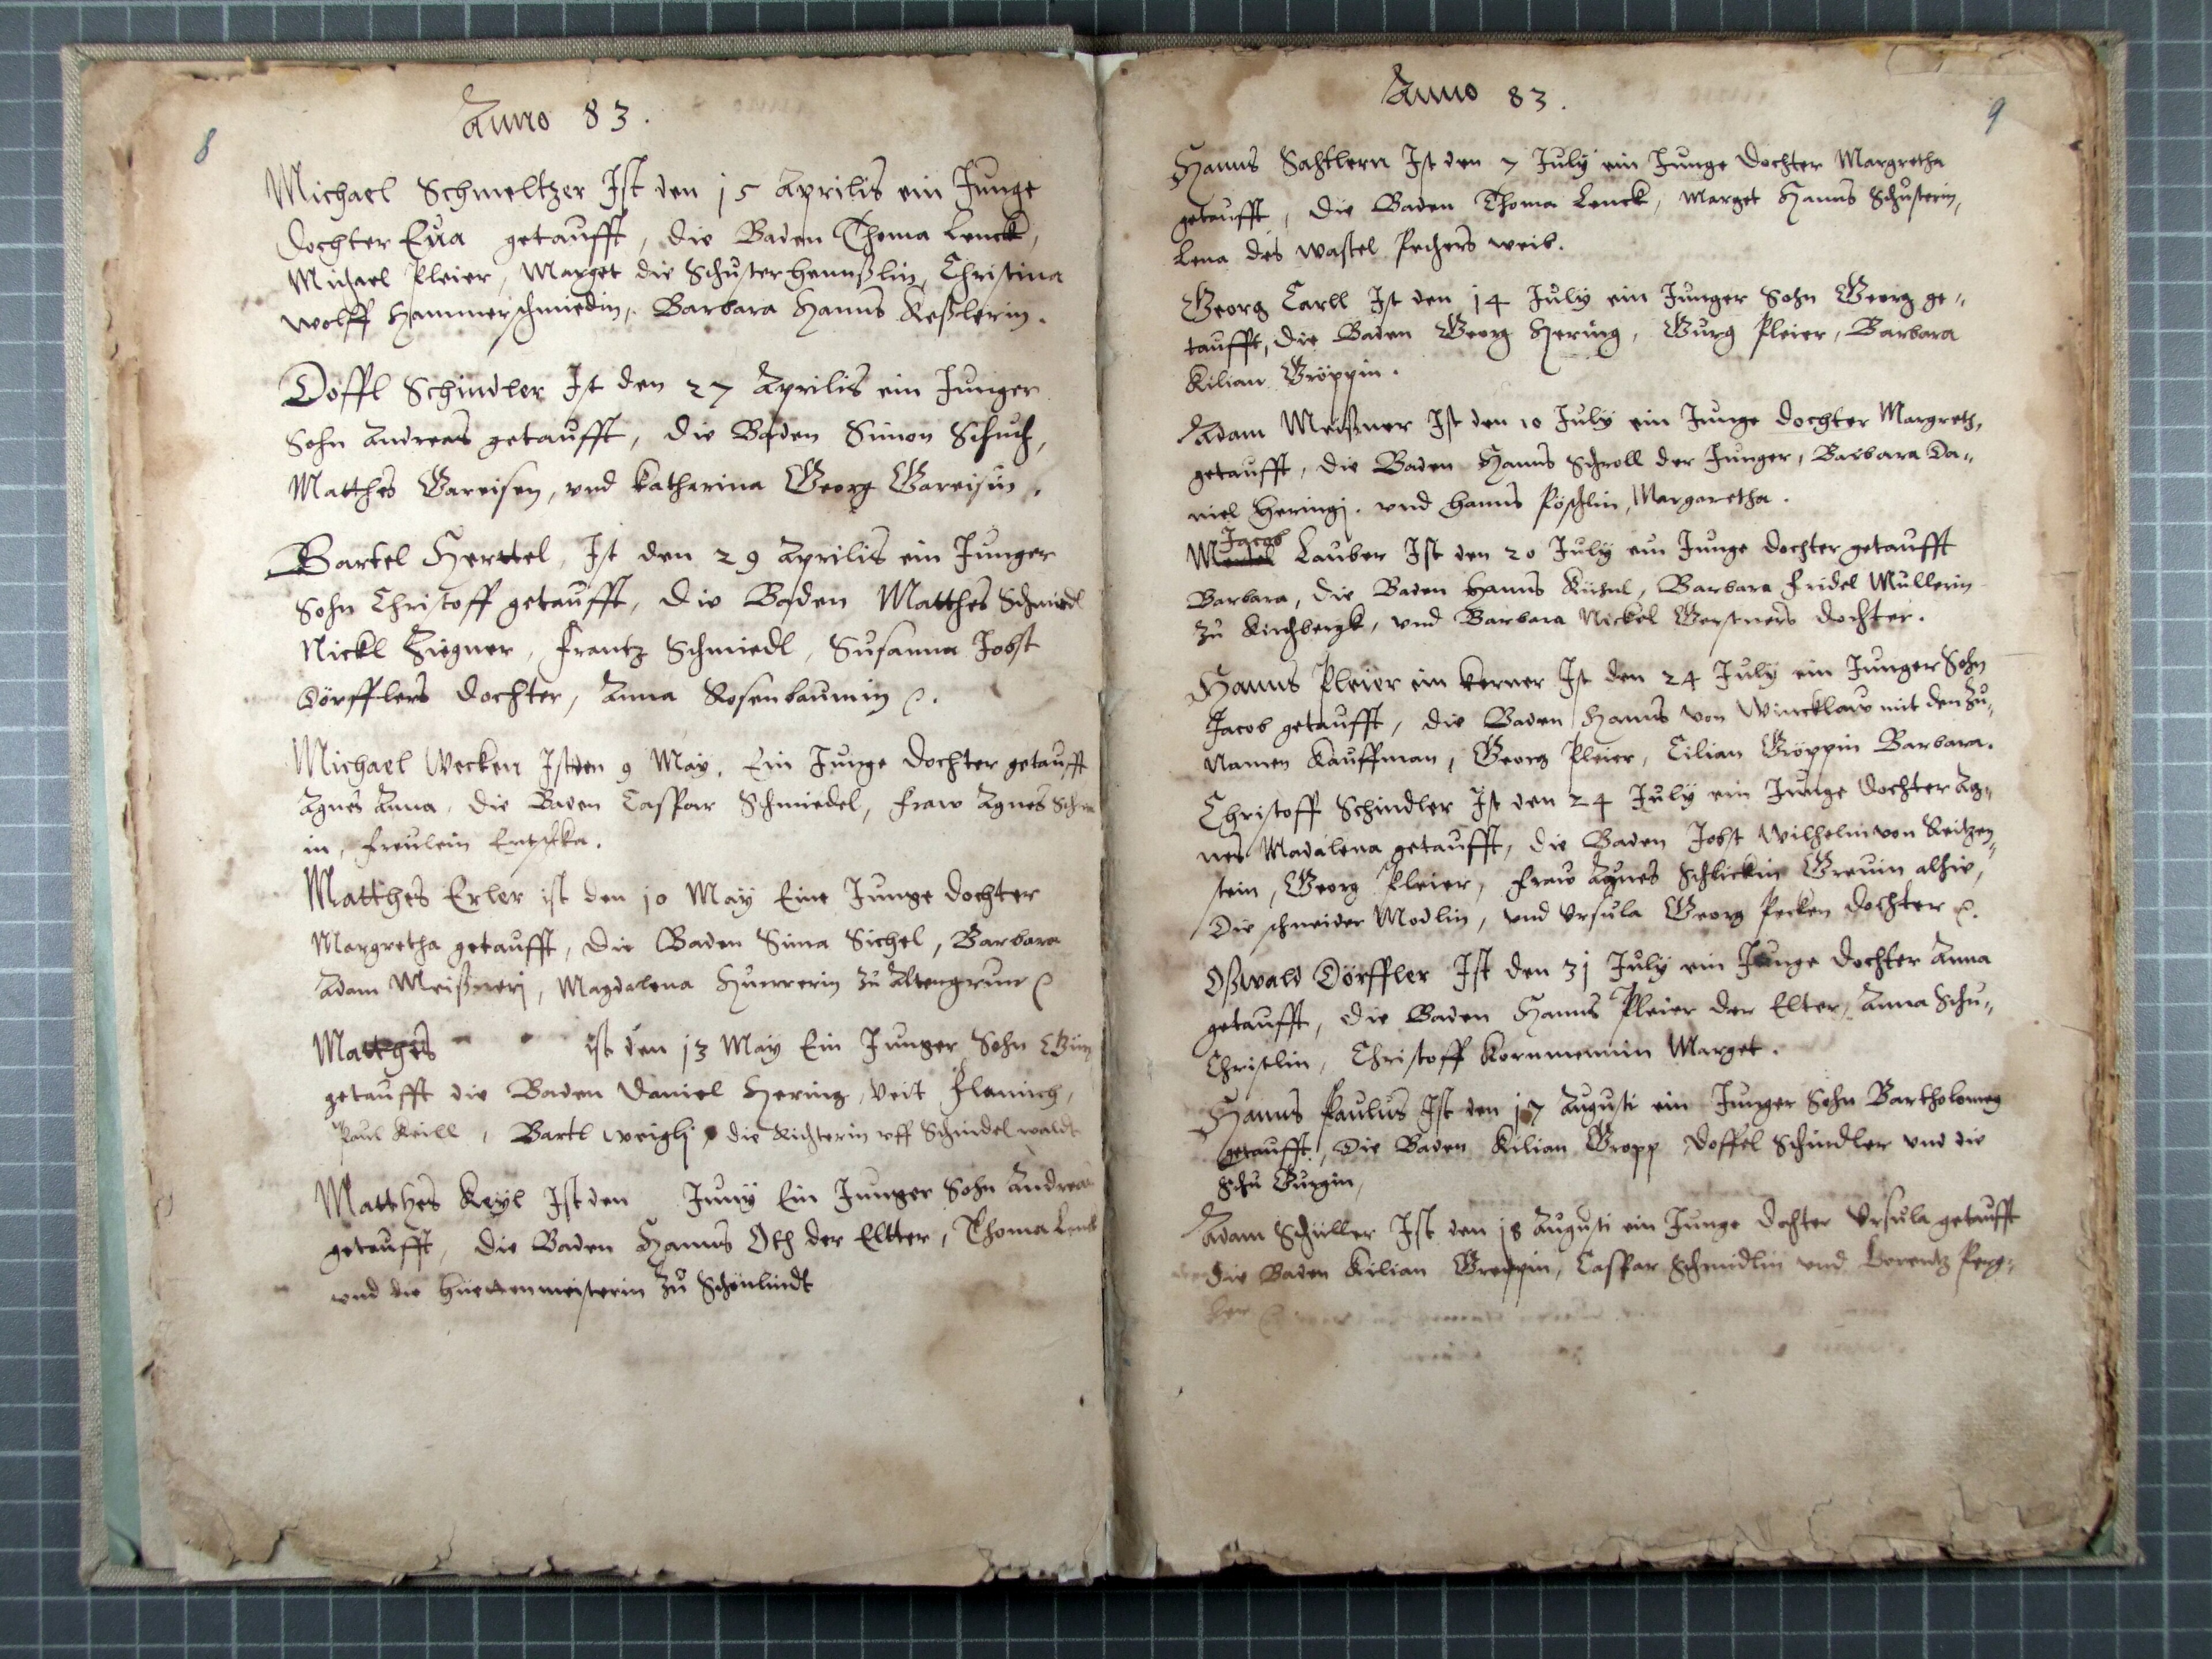 8
Anno 83.
Michael Schmeltzer Ist den 15 Aprilis ein Junge
dochter Eua getaufft, die Baden Thoma Lenck,
Michael Pleier, Marget die Schusterhennßlin, Christina
Wolff Hammerschmiedin, Barbara Hanns Keßlerin.
Doffl Schindler Ist den 27 Aprilis ein Junger
Sohn Andreas getaufft, die Baden Simon Schuch,
Matthes Gareisen, vnd Katharina Georg Gareisin.
Bartel Hertel, Ist den 29 Aprilis ein Junger
Sohn Christoff getaufft, die Baden Matthes Schmiedl
Nickl Ziegner, Frantz Schmiedl, Susanna Jobst
Dörfflers dochter, Anna Rosenbaumin
Michael Wecken Ist den 9 May. Ein Junge dochter getaufft
Agnes Anna, die Baden Caspar Schmiedel, Fraw Agnes
in, Freulein
Matthes Erler ist den 10 May Eine Junge dochter
Margretha getaufft, die Baden Sima Sichel, Barbara
Adam Meißneri, Magdalena zu Altengrun
Matthes ist den 13 May Ein Junger Sohn
getaufft die Baden Daniel Hering, Veit
Paul Keill, Bartl die Richterin vff Schindelwaldt
Matthes Keyl Ist den Juny Ein Junger Sohn Andreas
getaufft, die Baden Hanns Oth der Eltter, Thoma Lenck
vnd die Hüettenmeisterin zu Schönlindt
9
Anno 83.
Hanns Ist den 7 July ein Junge dochter Margretha
getaufft, die Baden Thoma Lenck, Marget Hanns Schusterin,
Lena des Wastel Pechers weib.
Georg Carll Ist den 14 July ein Junger Sohn Georg ge-
taufft, die Baden Georg Hering, Gurg Pleier, Barbara
Kilian Gröppin.
Adam Meißner Ist den 10 July ein Junge dochter Margreth,
getaufft, die Baden Hanns Schroll der Junger, Barbara Da-
niel Heringi. vnd Hanns Pöschlin, Margaretha.
Jacob
Lauber Ist den 20 July ein Junge dochter getaufft
Barbara, die Baden Hanns Kühnl, Barbara Fridel Müllerin
zu Kirchbergk, vnd Barbara Nickel Gerstners dochter.
Hanns Pleier ein Kerner Ist den 24 July ein Junger Sohn
Jacob getaufft, die Baden Hanns von Wincklaw mit den Zu-
Namen Kauffman, Georg Pleier, Cilian Gröppin Barbara.
Christoff Schindler Ist den 24 July ein Junge dochter Ag-
nes Madalena getaufft, die Baden Jobst Wilhelm von Reitzen-
stein, Georg Pleier, Fraw Agnes Schlickin Greuin alhie,
Die schneider Modlin, vnd Vrsula Georg Pecken dochter
Oßwald Dörffler Ist den 31 July ein Junge dochter Anna
getaufft, die Baden Hanns Pleier der Elter, Anna Schu-
Christlin, Christoff Kornmennin Marget.
Hanns Paulus Ist den 17 Augusti ein Junger Sohn Bartholomeg
getaufft, Die Baden Kilian Gropp Doffel Schindler vnd die
Schu Gurgin,
Adam Schüller Ist den 18 Augusti ein Junge dochter Vrsula getaufft
die Baden Kilian Groppin, Caspar Schmidlin vnd Lorentz Perg-
ler